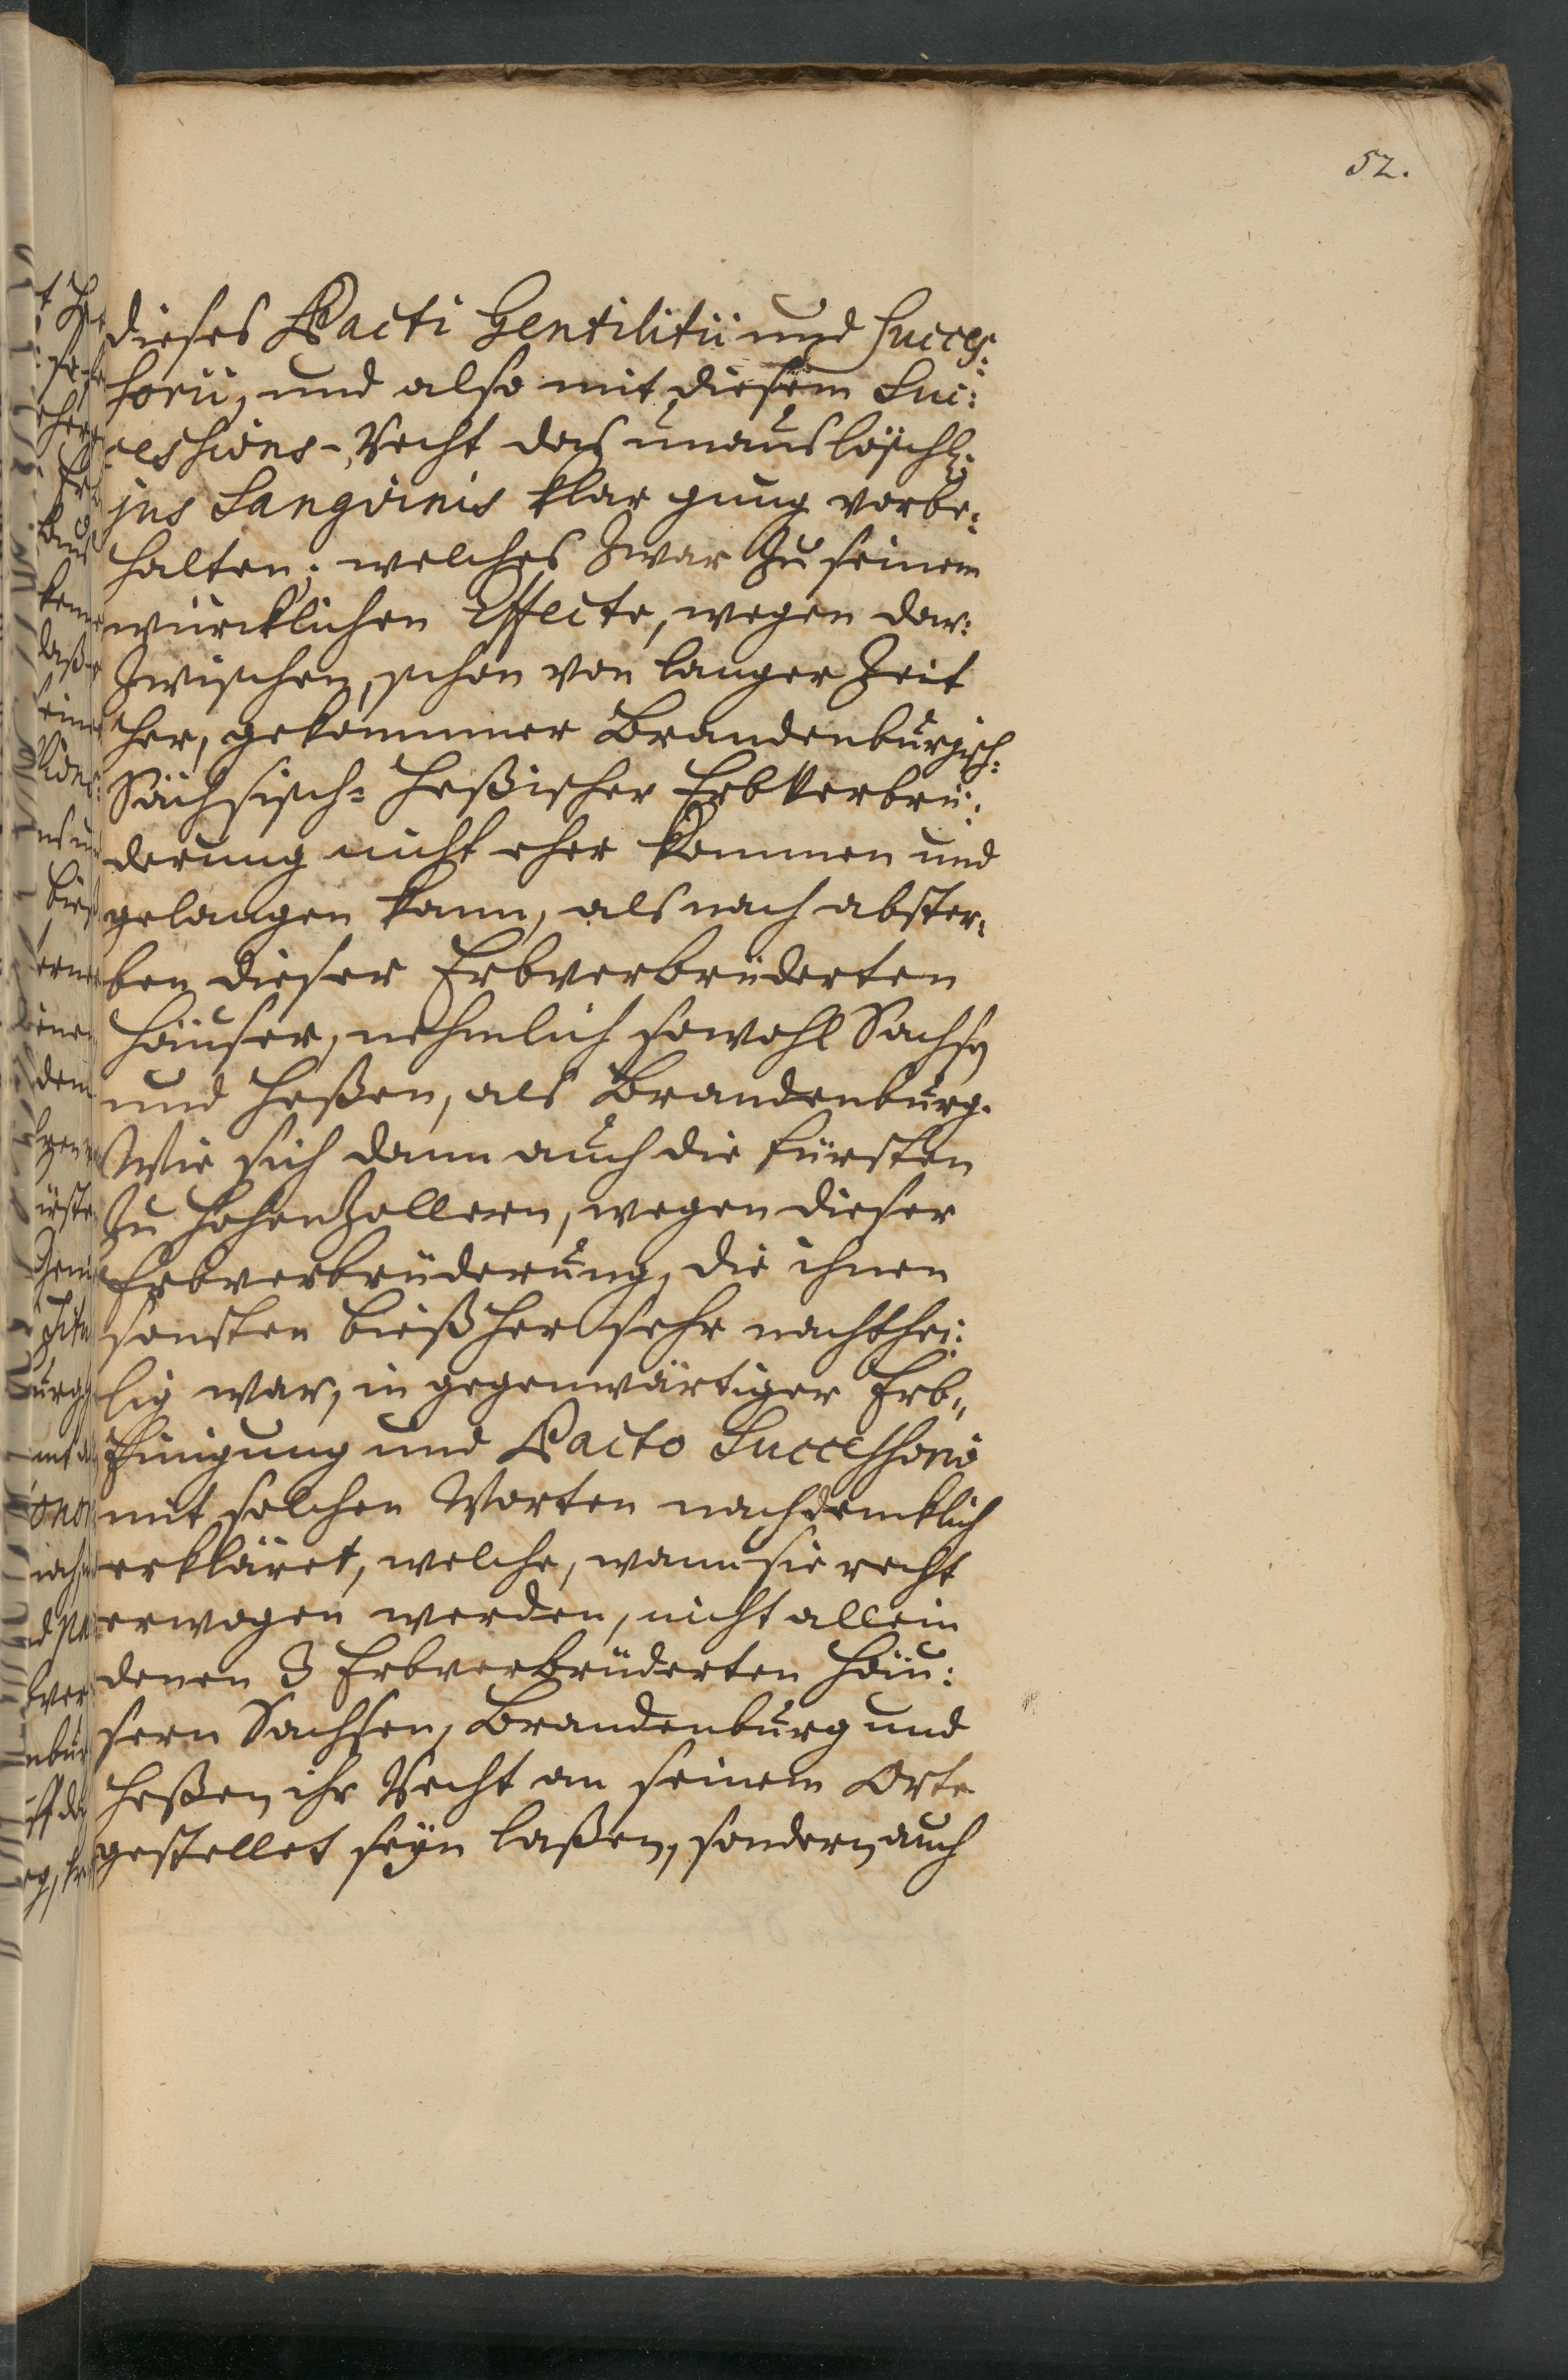 52.
dieses Pacti Gentilitii und succes:
sorii, und also mit diesem Suc:
cessions-Recht das unauslöschl:
jus Sangvinis klar gnug vorbe:
halten; welches zwar zu seinem
würcklichen Effecte, wegen dar:
zwischen, schon von langer Zeit
her, gekommner Brandenburgisch:
Sächsisch- Heßischer Erbverbrü:
derung nicht eher kommen und
gelangen kann, als nach abster:
ben dieser Erbverbrüderten
Häuser, nehmlich sowohl Sachsen
und Heßen, als Brandenburg.
Wie sich dann auch die Fürsten
zu Hohenzollern, wegen dieser
Erbverbrüderung, die ihnen
sonsten bießher sehr nachthei:
lig war, in gegenwärtiger Erb-
Einigung und Pacto Successorio
mit solchen Worten nachdrücklich
erkläret, welche, wann sie recht
erwogen werden, nicht allein
denen 3 Erbverbrüderten Häu:
sern Sachsen, Brandenburg und
Heßen ihr Recht an seinem Orte
gestellet seyn laßen, sondern auch